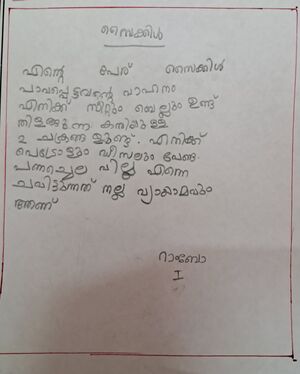 സൈക്കിൾ
എന്റെ പേര് സൈക്കിൾ
പാവപ്പെട്ടവന്റെ വാഹനം
എനിക്ക് സീറ്റും ബെല്ലും ഉണ്ട്
തിളങ്ങുന്ന കതിയുള്ള
2 ചക്രങ്ങളുണ്ട്. എനിക്ക്
പെട്രോളും ഡീസലും വേണ്ട
പണച്ചെല വില്ല എന്നെ
ചവിട്ടുന്നത് നല്ല വ്യായാമവും
ആണ്
റാബോ
I